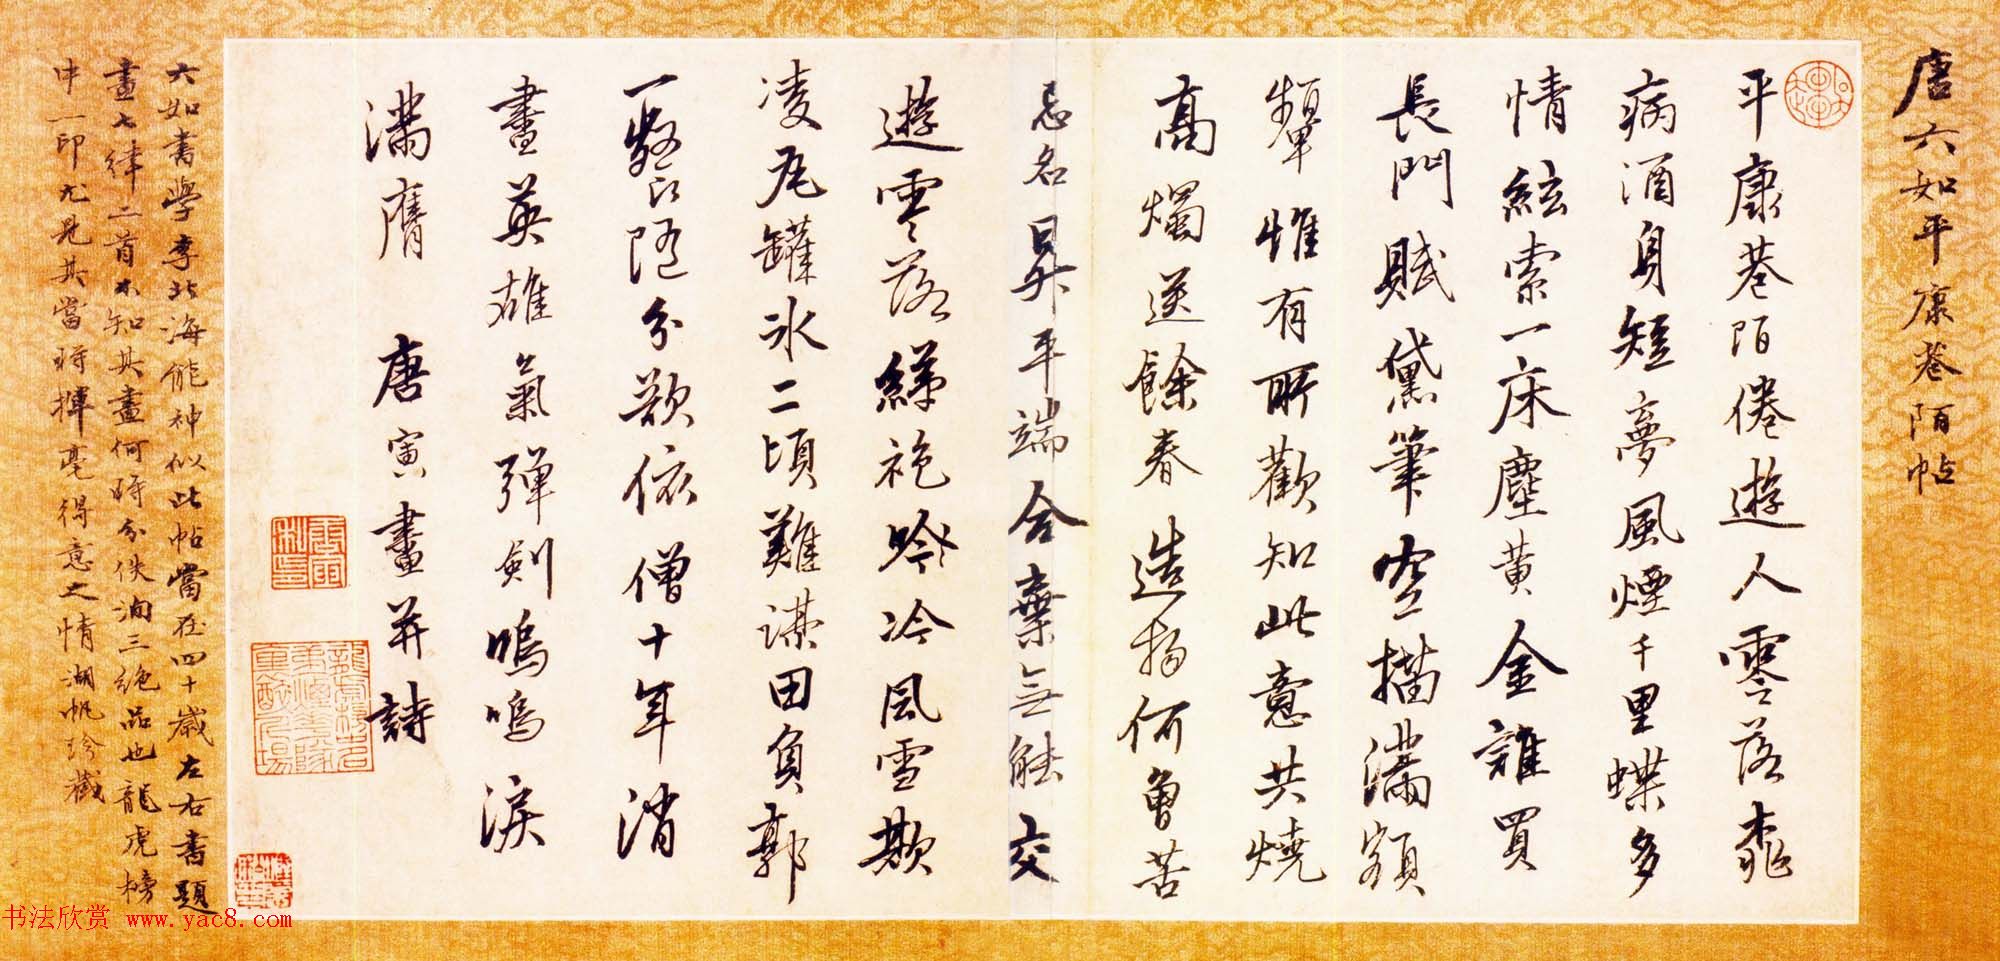 唐六如平康巷陌帖
平康巷陌倦遊人零落桃
病酒身短夢風煙千里蝶多
情絃索一床塵黃金誰買
長門賦黛筆空描滿額
顰惟有所歡知此意共燒
高燭送餘春 造物何曾苦
忌名昇平端合棄無能交
遊零落綈袍吟冷風雪欺
凌瓦罐冰二頃難謀田負郭
一餐隨分欲依僧十年消
盡英雄氣彈劍嗚嗚淚
滿膺 唐寅畫并詩
六如書學李北海能神似此帖當在四十歲左右書題
畫七律二首不知其畫何時分佚洵三絕品也龍虎榜
中一印尤見其當時揮毫得意之情湖帆珍藏
书法欣赏 www.yac8.com